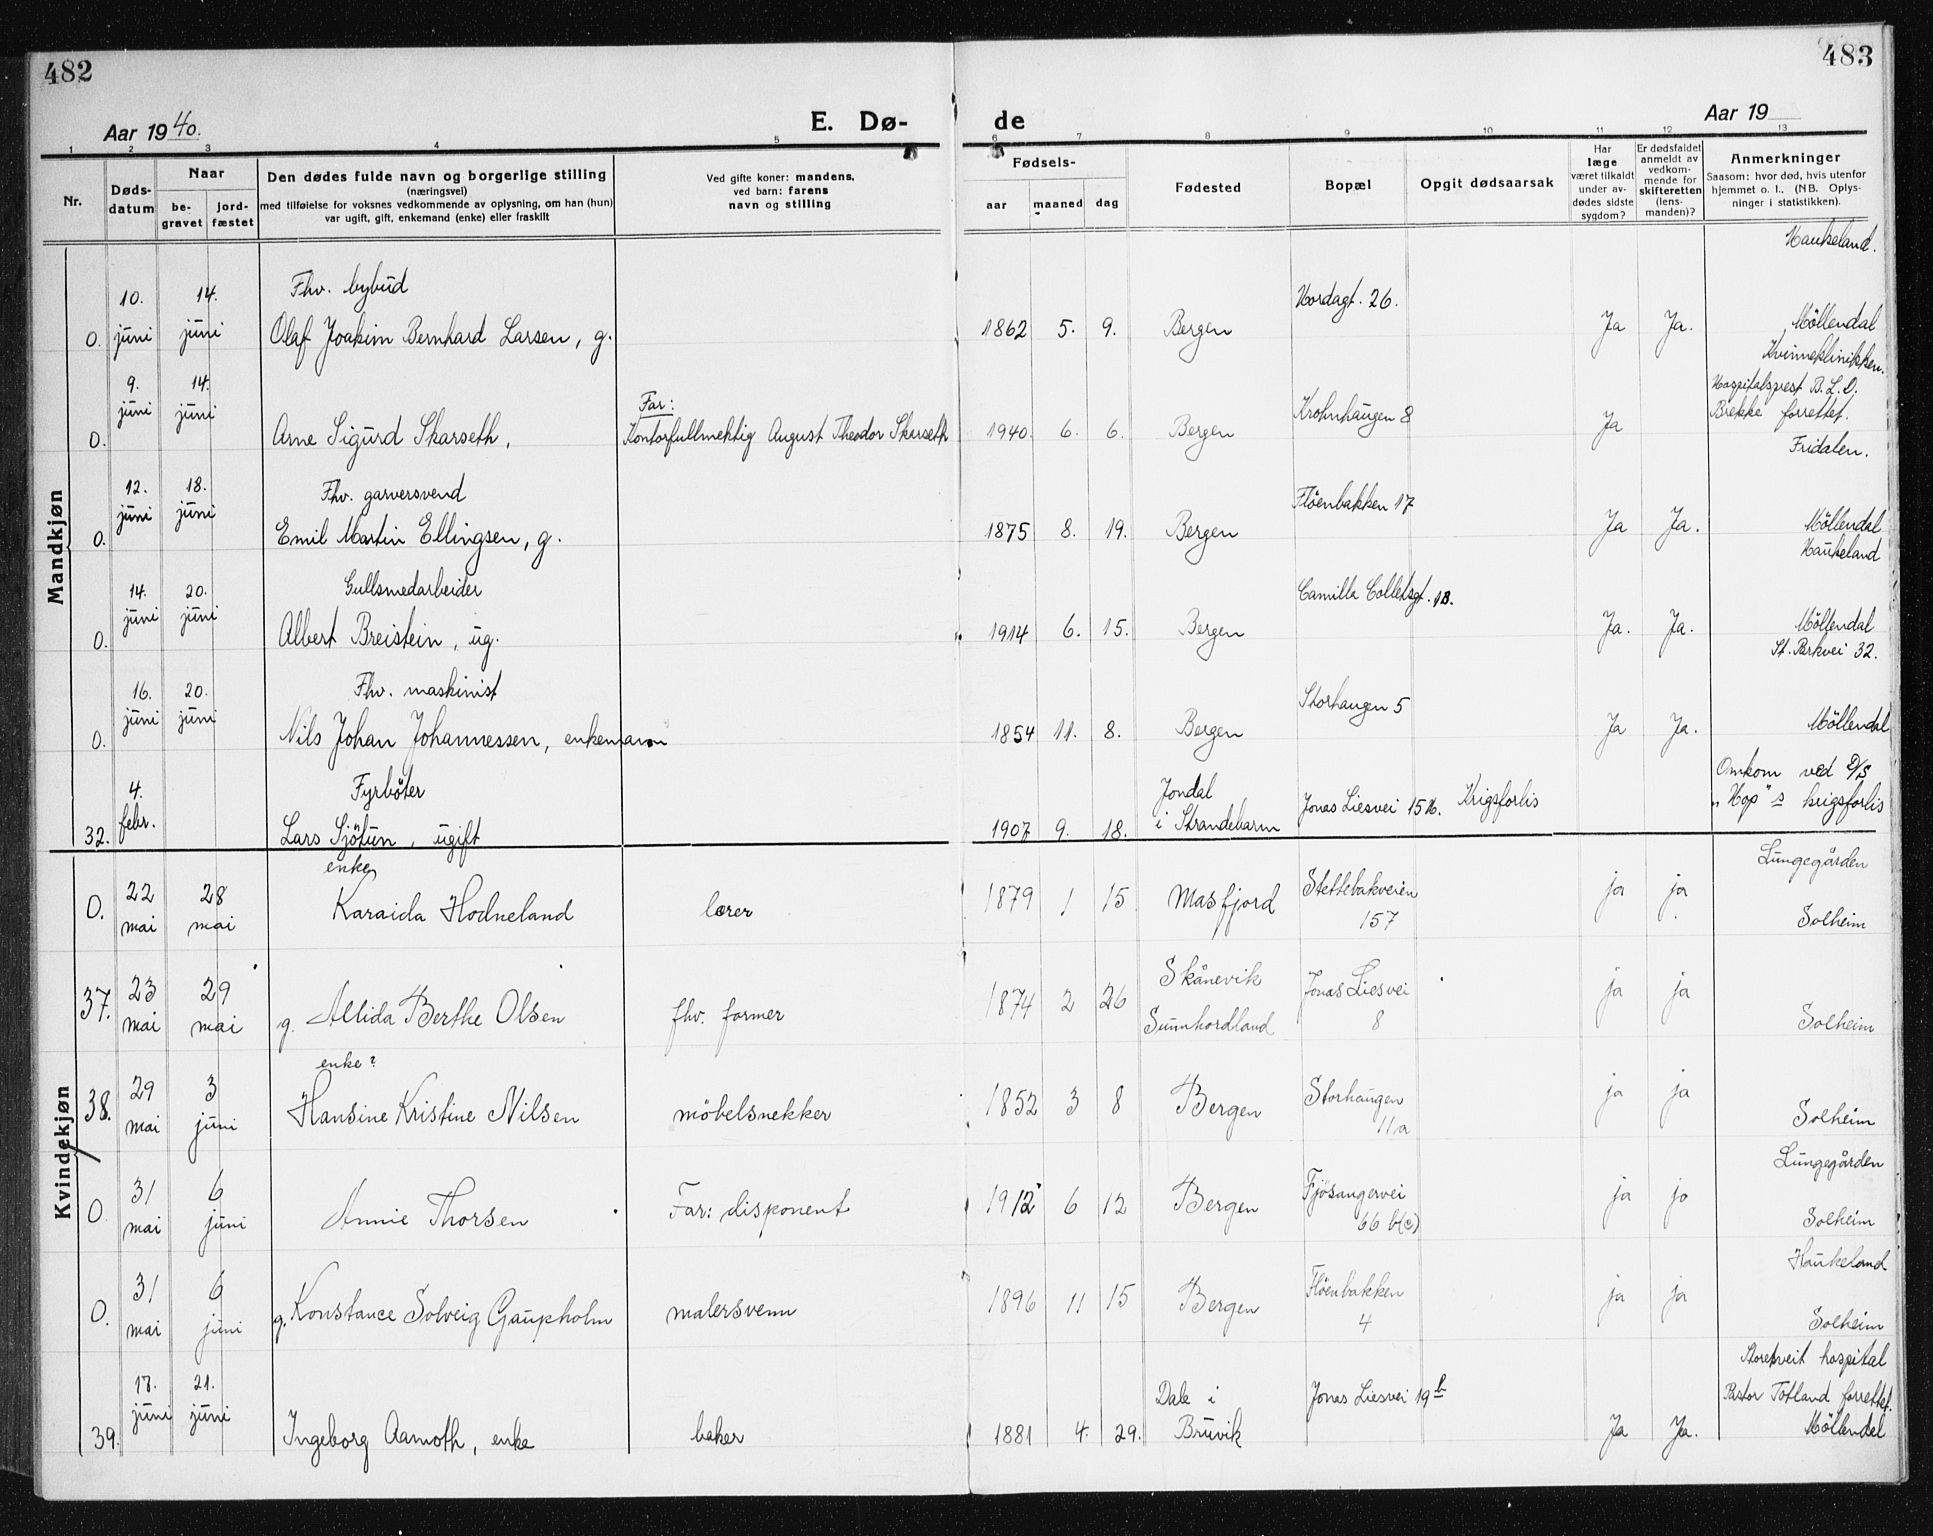 482
483
Aar 1940.
E. Dø-
de
Aar 19
1 2 3 4 5 6 7 8 9 10 11 12 13
Nr.
Døds-
datum
Naar
be-
gravet
jord-
fæstet
Den dødes fulde navn og borgerlige stilling
(næringsvei)
med tilføielse for voksnes vedkommende av oplysning, om han (hun)
var ugift, gift, enkemand (enke) eller fraskilt
Ved gifte koner: mandens,
ved barn: farens
navn og stilling
Fødsels-
aar maaned dag
Fødested
Bopæl
Opgit dødsaarsak
Har
læge
været tilkaldt
under av-
dødes sidste
sygdom?
Er dødsfaldet
anmeldt av
vedkom-
mende for
skifteretten
(lens-
manden)?
Anmerkninger
Saasom: hvor død, hvis utenfor
hjemmet o. l.. (NB. Oplys-
ninger i statistikken).
Mandkjøn
Haukeland.
10. 14. Fhv. bybud Nordagt. 26.
0. juni juni Olaf Joakim Bernhard Larsen, g. 1862 5. 9. Bergen Ja Ja. Möllendal
Kvinneklinikken.
9. 14. Far: Krohnhaugen 8 Hospitalsprest B. L. O.
juni juni Brekke forrettet.
0. Arne Sigurd Skarseth, Kontorfullmektig August Theodor Skarseth 1940. 6. 6. Bergen Ja
Fridalen.
12. 18. Fhv. garversvend Flöenbakken 17
juni juni
0. Emil Martin Ellingsen, g. 1875 8. 19. Bergen Ja Ja. Möllendal
Haukeland
14. 20. Gullsmedarbeider Camilla Colletsgt. 18.
juni juni
0. Albert Breistein, ug. 1914 6. 15. Bergen Ja. Ja. Möllendal
St. Parkvei 32.
16. 20. Fhv. maskinist Storhaugen 5
juni juni
0. Nils Johan Johannessen, enkemann 1854 11. 8. Bergen Ja Ja. Möllendal
4. Fyrböter Jondal Omkom ved D/S
febr. Jonas Liesvei Krigsforlis „Hop"s krigsforlis
32. Lars Sjötun, ugift 1907 9. 18. i Strandebarm
Kvindekjøn
enke Lungegården
0. 22 28 Karaida Hodneland lærer 1879 1 15 Masfjord Stettebakveien ja ja
mai mai 157 Solheim
37. 23 29 Skånevik Jonas Liesvei ja ja
mai mai g. Allida Berthe Olsen fhv. former 1874 2 26 Sunnhordland 8 Solheim
enke?
38. 29 3 Hansine Kristine Nilsen möbelsnekker 1852 3 8 Bergen Storhaugen ja ja
mai juni 11a Solheim
Lungegården
0 31 6 Annie Thorsen Far: disponent 1912 6 12 Bergen Fjösangervei ja ja
mai juni 66 b(c) Solheim
Haukeland
0. 31 6 g. Konstance Solveig Gaupholm malersvenn 1896 11 15 Bergen Flöenbakken ja ja
mai juni 4 Solheim
Storetveit hospital
17. 21. Dale i Jonas Liesvei 19b Pastor Totland forrettet.
juni juni
39. Ingeborg Aamoth, enke baker 1881 4. 29. Bruvik Ja Ja. Möllendal